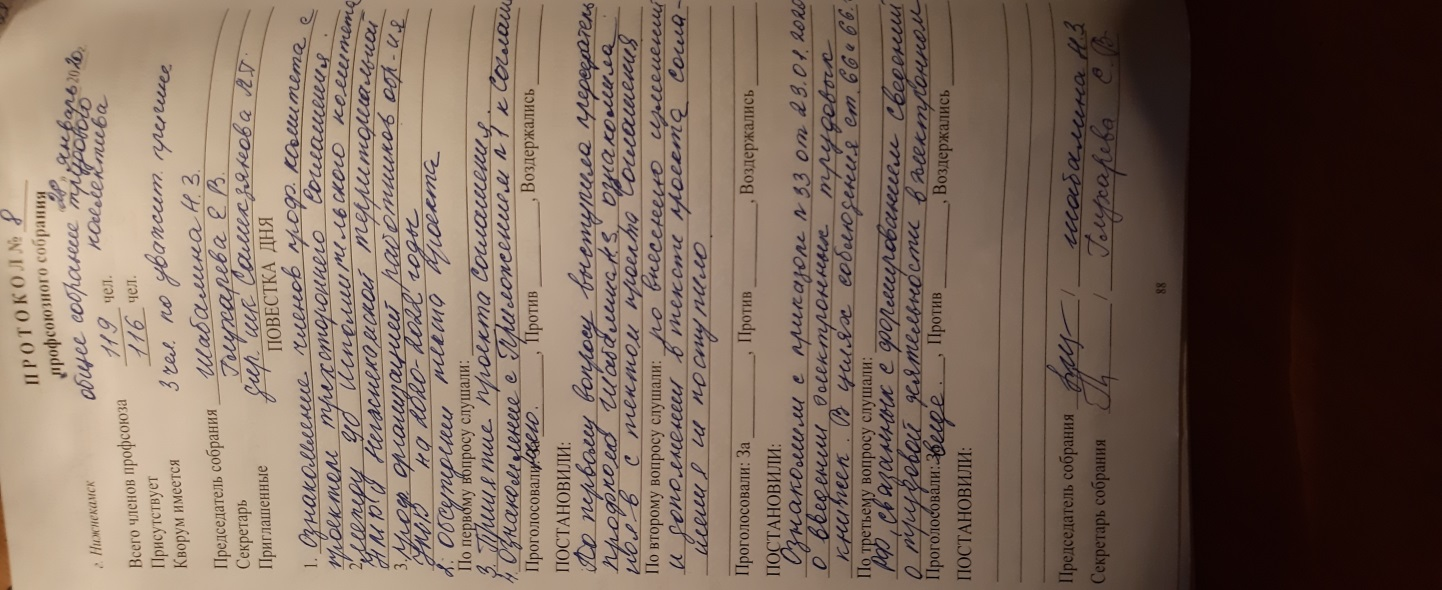 ПРОТОКОЛ № 8
профсоюзного собрания
г. Нижнекамск
общее собрание трудового коллектива
января 2020.
Всего членов профсоюза 119 чел.
Присутствует 116 чел.
Кворум имеется 3 чел. по уважит. причине
Председатель собрания Шабалина Н.З.
Секретарь Гонтарева С.В.
Приглашенные дир. шк.
ПОВЕСТКА ДНЯ
1. Ознакомление членов проф. комитета с
проектом трехстороннего Соглашения
2. между до Исполнительского комитета
и территориальной
3. проф. организацией работников обр-ия
на 2020- годы
2. Обсуждении текста проекта
По первому вопросу слушали:
3. Принятие проекта Соглашения.
4. Ознакомление с Приложением № 1 к Соглаш
Проголосовали: , Против , Воздержались
ПОСТАНОВИЛИ:
По первому вопросу выступила председатель
профкома Шабалина Н.З. ознакомила
с текстом проекта Соглашения
По второму вопросу слушали: по внесению изменений
и дополнений в тексте проекта Согла-
шения не поступило.
Проголосовали: За , Против , Воздержались
ПОСТАНОВИЛИ:
Ознакомили с приказом № 33 от 23.01.2020
о введении электронных трудовых
книжек. В целях соблюдения ст. 66 и 66.
По третьему вопросу слушали:
РФ, связанных с формированием сведений
о трудовой деятельности в электронном
Проголосовали: виде. , Против , Воздержались
ПОСТАНОВИЛИ:
Председатель собрания / Шабалина Н.З
Секретарь собрания / Гонтарева С.В.
88